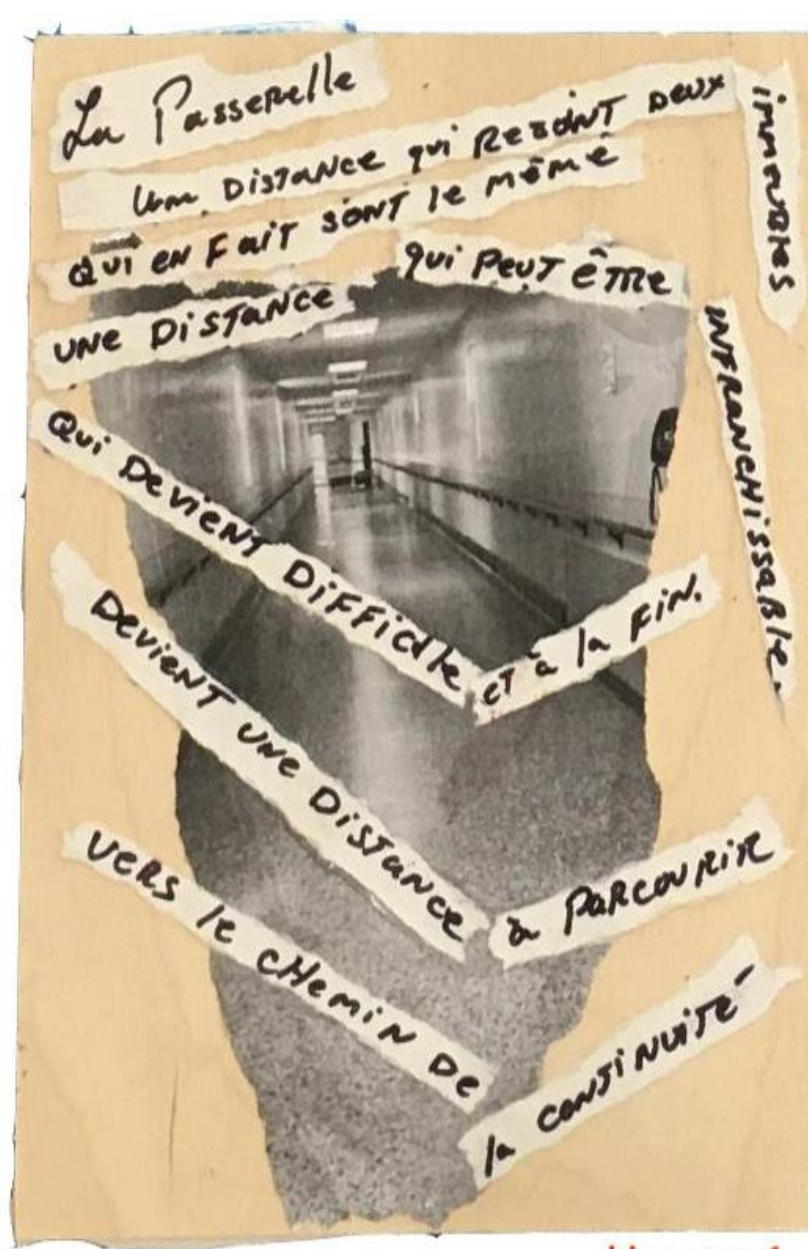 La Passerelle
Une DISTANCE qui REJOINT DEUX immeubles
QUI EN FAIT SONT le même
UNE DISTANCE qui PEUT êTRE INFRANCHISSABLE.
QUI DEVIENT DIFFICILE ET à la FIN.
DEVIENT UNE DISTANCE à PARCOURIR
VERS le CHEMIN DE la CONTINUITÉ